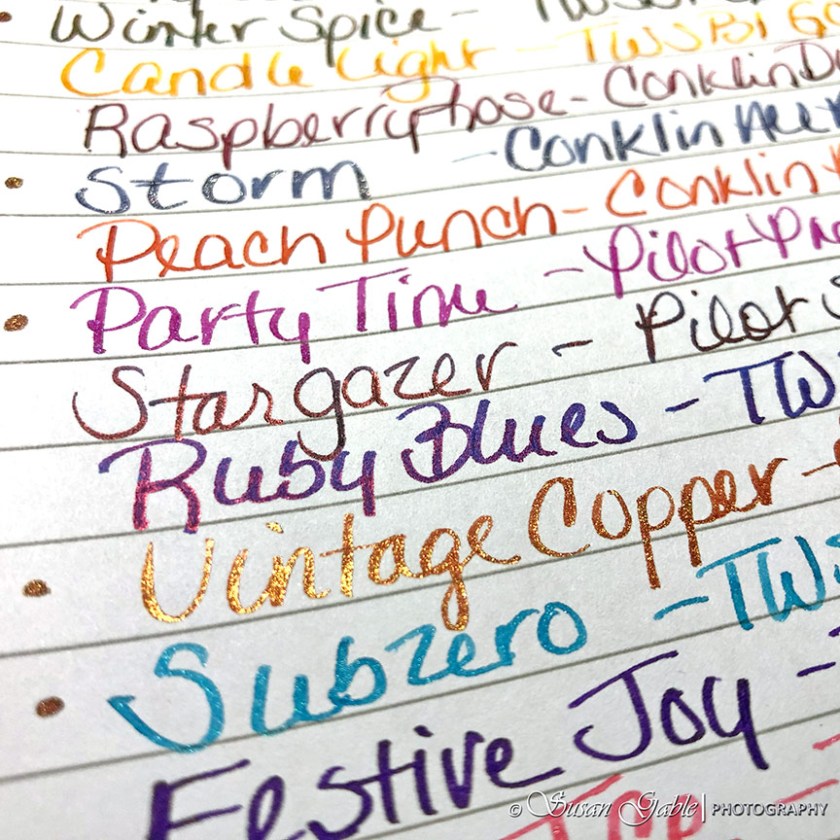 Winter Spice - TWSB
Candle Light - TWSBI GO
Raspberry Rose - Conklin Du
Storm - Conklin
Peach Punch - Conklin
Party Time - Pilot Pre
Stargazer - Pilot
Ruby Blues - TW
Vintage Copper -
Subzero - TWS
Festive Joy -
© Susan Gable | PHOTOGRAPHY